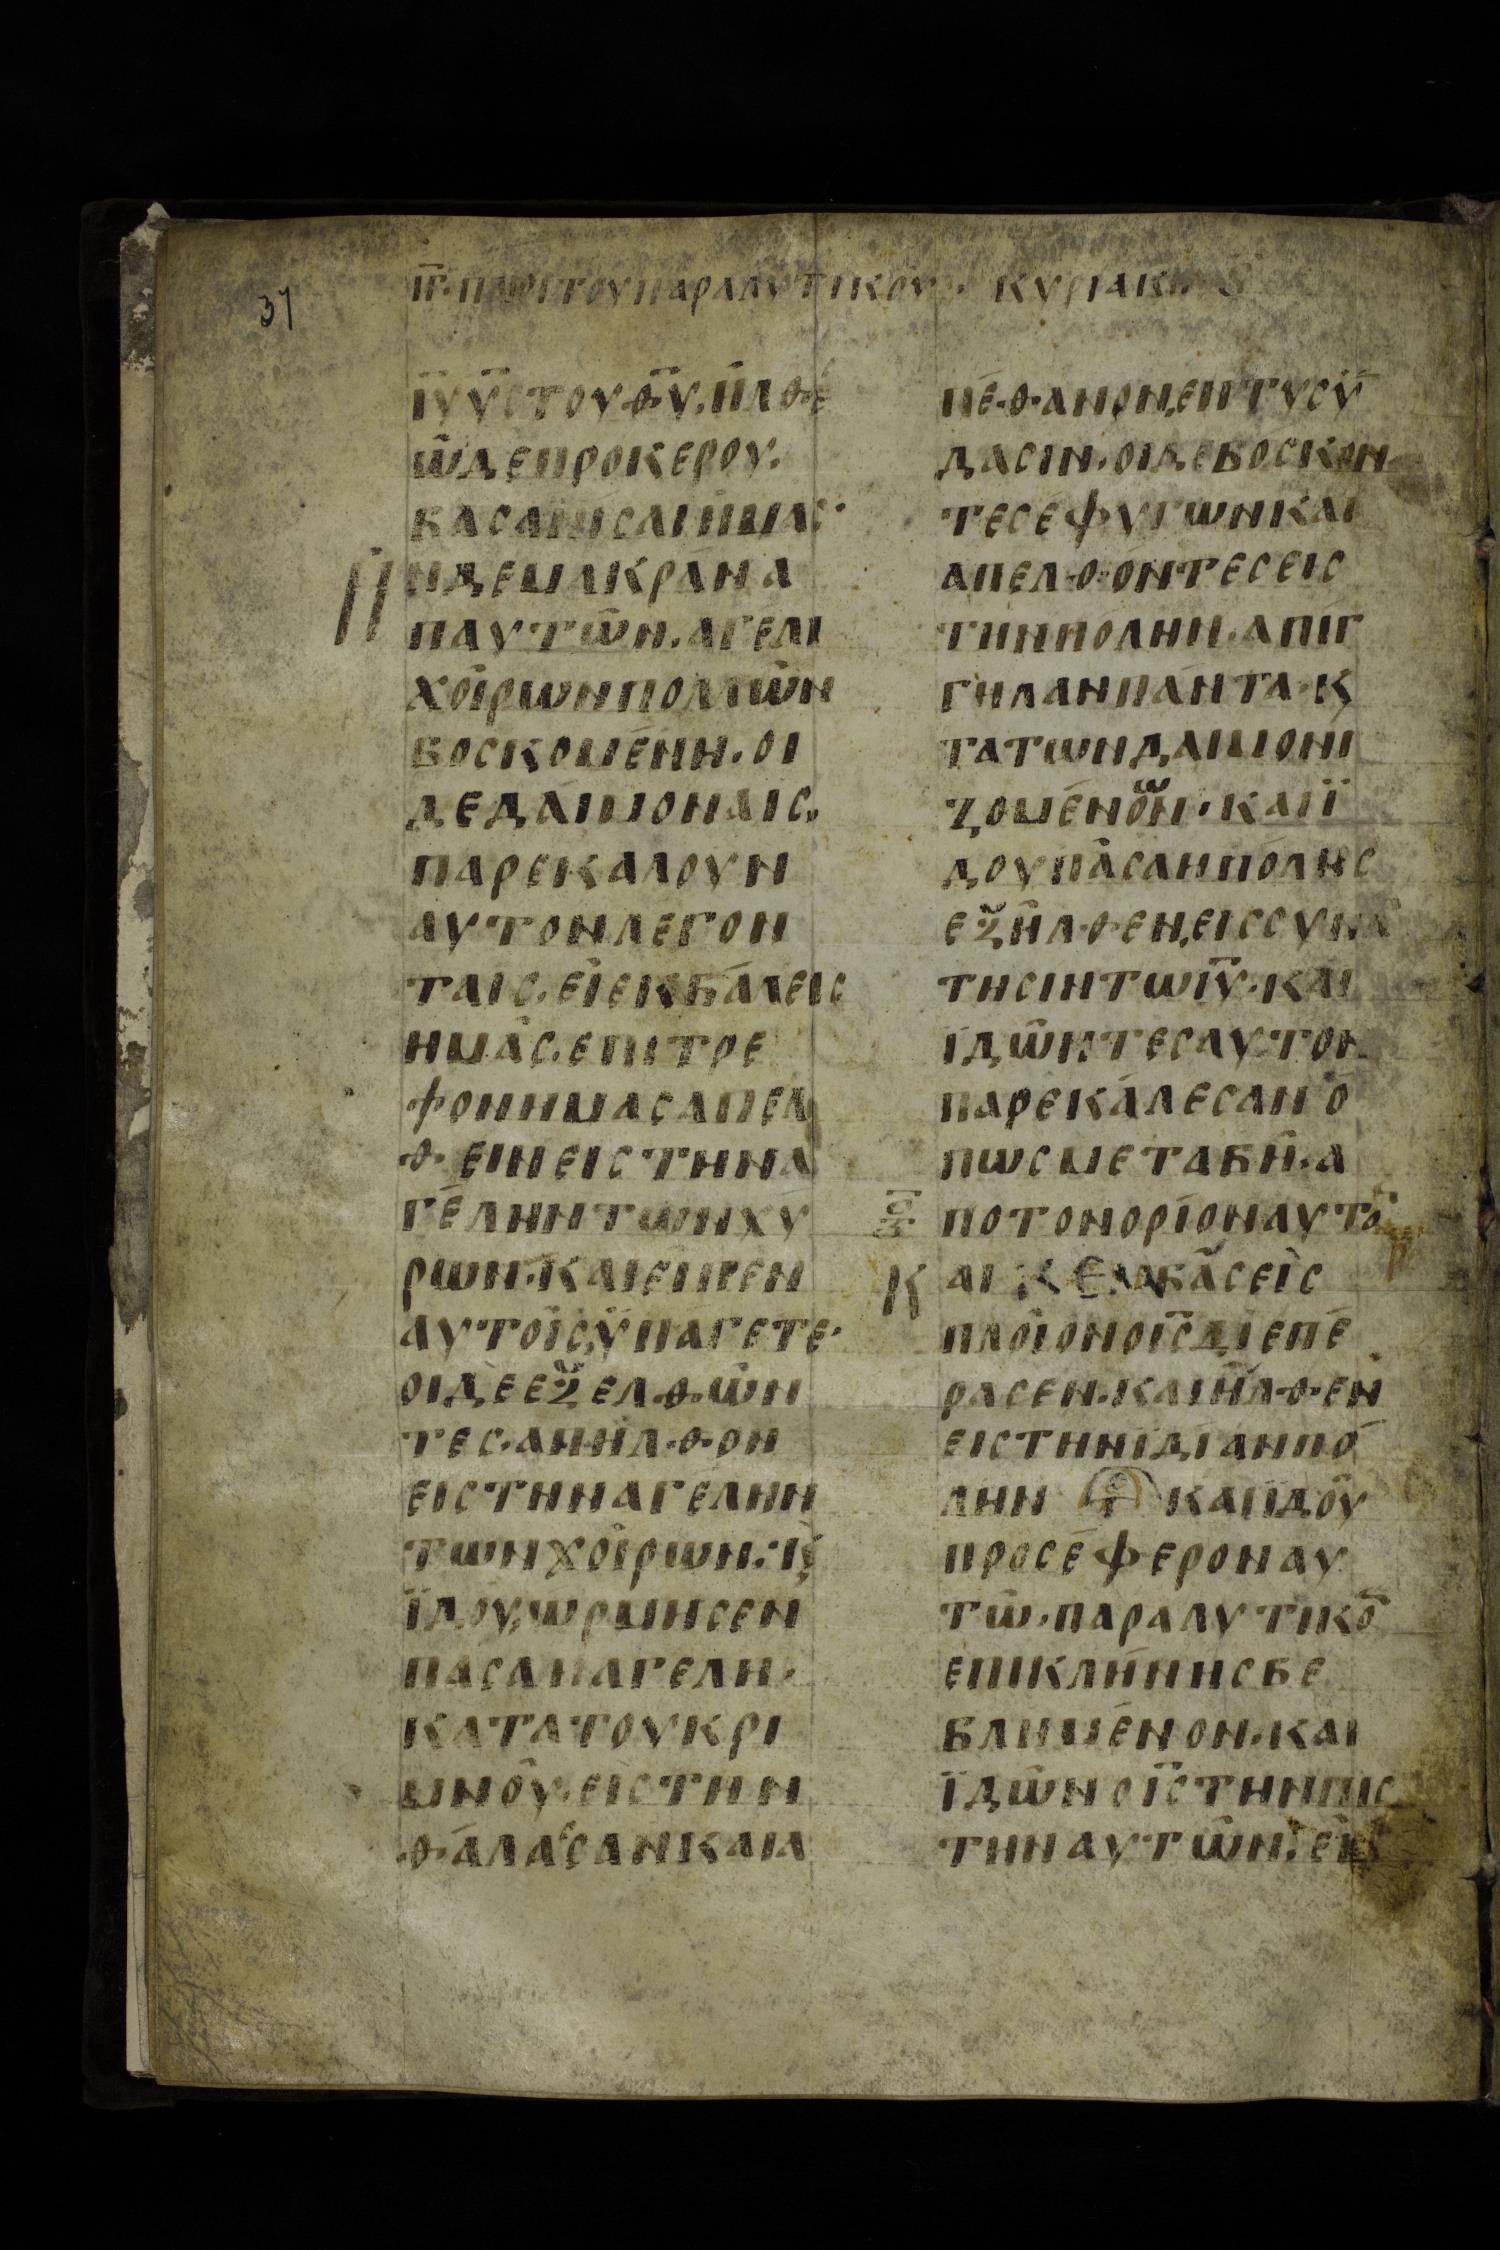 37
ΠΕΡΙ ΤΟΥ ΠΑΡΑΛΥΤΙΚΟΥ· ΚΥΡΙΑΚΗ
Ι̅Υ̅ Υ̅Ε̅ ΤΟΥ Θ̅Υ̅. ΗΛΘΕ
ὨΔΕ ΠΡΟ ΚΕΡΟΥ.
ΒΑΣΑΝΗΣΑΙ ΗΜΑΣ·
ΗΝ ΔΕ ΜΑΚΡΑΝ Α
Π ΑΥΤΩΝ. ΑΓΕΛΙ
ΧΟΙΡΩΝ ΠΟΛΛΩΝ
ΒΟΣΚΟΜΕΝΗ. ΟΙ
ΔΕ ΔΑΙΜΟΝΑΙΣ.
ΠΑΡΕΚΑΛΟΥΝ
ΑΥΤΟΝ ΛΕΓΟΝ
ΤΑΙΣ. ΕΙ ΕΚΒΑΛΕΙΣ
ΗΜΑΣ. ΕΠΙΤΡΕ
ΦΟΝ ΗΜΑΣ ΑΠΕΛ
ΘΕΙΝ ΕΙΣ ΤΗΝ Α
ΓΕΛΗΝ ΤΩΝ ΧΥ
ΡΩΝ. ΚΑΙ ΕΙΠΕΝ
ΑΥΤΟΙΣ, ΫΠΑΓΕΤΕ·
ΟΙ ΔΕ ΕΞΕΛΘΩΝ
ΤΕΣ. ΑΠΗΛΘΟΝ
ΕΙΣ ΤΗΝ ΑΓΕΛΗΝ
ΤΩΝ ΧΟΙΡΩΝ. Κ
ΪΔΟΥ, ΩΡΜΗΣΕΝ
ΠΑΣΑ Η ΑΓΕΛΗ.
ΚΑΤΑ ΤΟΥ ΚΡΙ
ΜΝΟΥ. ΕΙΣ ΤΗΝ
ΘΑΛΑΣΑΝ ΚΑΙ Α
ΠΕΘΑΝΟΝ, ΕΝ ΤΥΣ Ϋ
ΔΑΣΙΝ. ΟΙ ΔΕ ΒΟΣΚΟΝ
ΤΕΣ ΕΦΥΓΩΝ ΚΑΙ
ΑΠΕΛΘΟΝΤΕΣ ΕΙΣ
ΤΗΝ ΠΟΛΗΝ. ΑΠΙΓ
ΓΗΛΑΝ ΠΑΝΤΑ. Κ
ΤΑ ΤΩΝ ΔΑΙΜΟΝΙ
ΖΟΜΕΝΩΝ. ΚΑΙ Ϊ
ΔΟΥ ΠΑΣΑ Η ΠΟΛΗΣ
ΕΞΗΛΘΕΝ, ΕΙΣ ΣΥΝΑ
ΤΗΣΙΝ ΤΩ Ι̅Υ̅. ΚΑΙ
ΪΔΩΝΤΕΣ ΑΥΤΟΝ
ΠΑΡΕΚΑΛΕΣΑΝ Ο
ΠΩΣ ΜΕΤΑΒΗ. Α
ΠΟ ΤΟΝ ΟΡΙΟΝ ΑΥΤΟ
ΚΑΙ ΕΜΒΑΣ ΕΙΣ
ΠΛΟΙΟΝ Ο Ι̅Σ̅ ΔΙΕΠΕ
ΡΑΣΕΝ. ΚΑΙ ΗΛΘΕΝ
ΕΙΣ ΤΗΝ ΙΔΙΑΝ ΠΟ
ΛΗΝ ΚΑΙ ΪΔΟΥ
ΠΡΟΣΕΦΕΡΟΝ ΑΥ
ΤΩ. ΠΑΡΑΛΥΤΙΚΟ
ΕΠΙ ΚΛΗΝΗΣ ΒΕ
ΒΛΗΜΕΝΟΝ. ΚΑΙ
ΪΔΩΝ Ο Ι̅Σ̅ ΤΗΝ ΠΙΣ
ΤΗΝ ΑΥΤΩΝ.